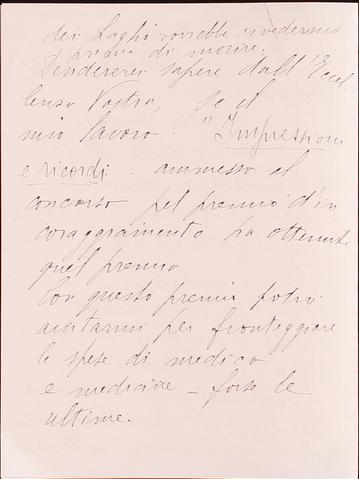 dei Laghi vorrebbe rivedermi
prima di morire.
Desidererei sapere dall'Eccel
lenza Vostra, se il
mio lavoro "Impressioni
e ricordi" ammesso al
concorso pel premio d'in
coraggiamento ha ottenuto
quel premio
Con questo premio potrò
aiutarmi per fronteggiare
le spese di medico
e medicine – forse le
ultime.